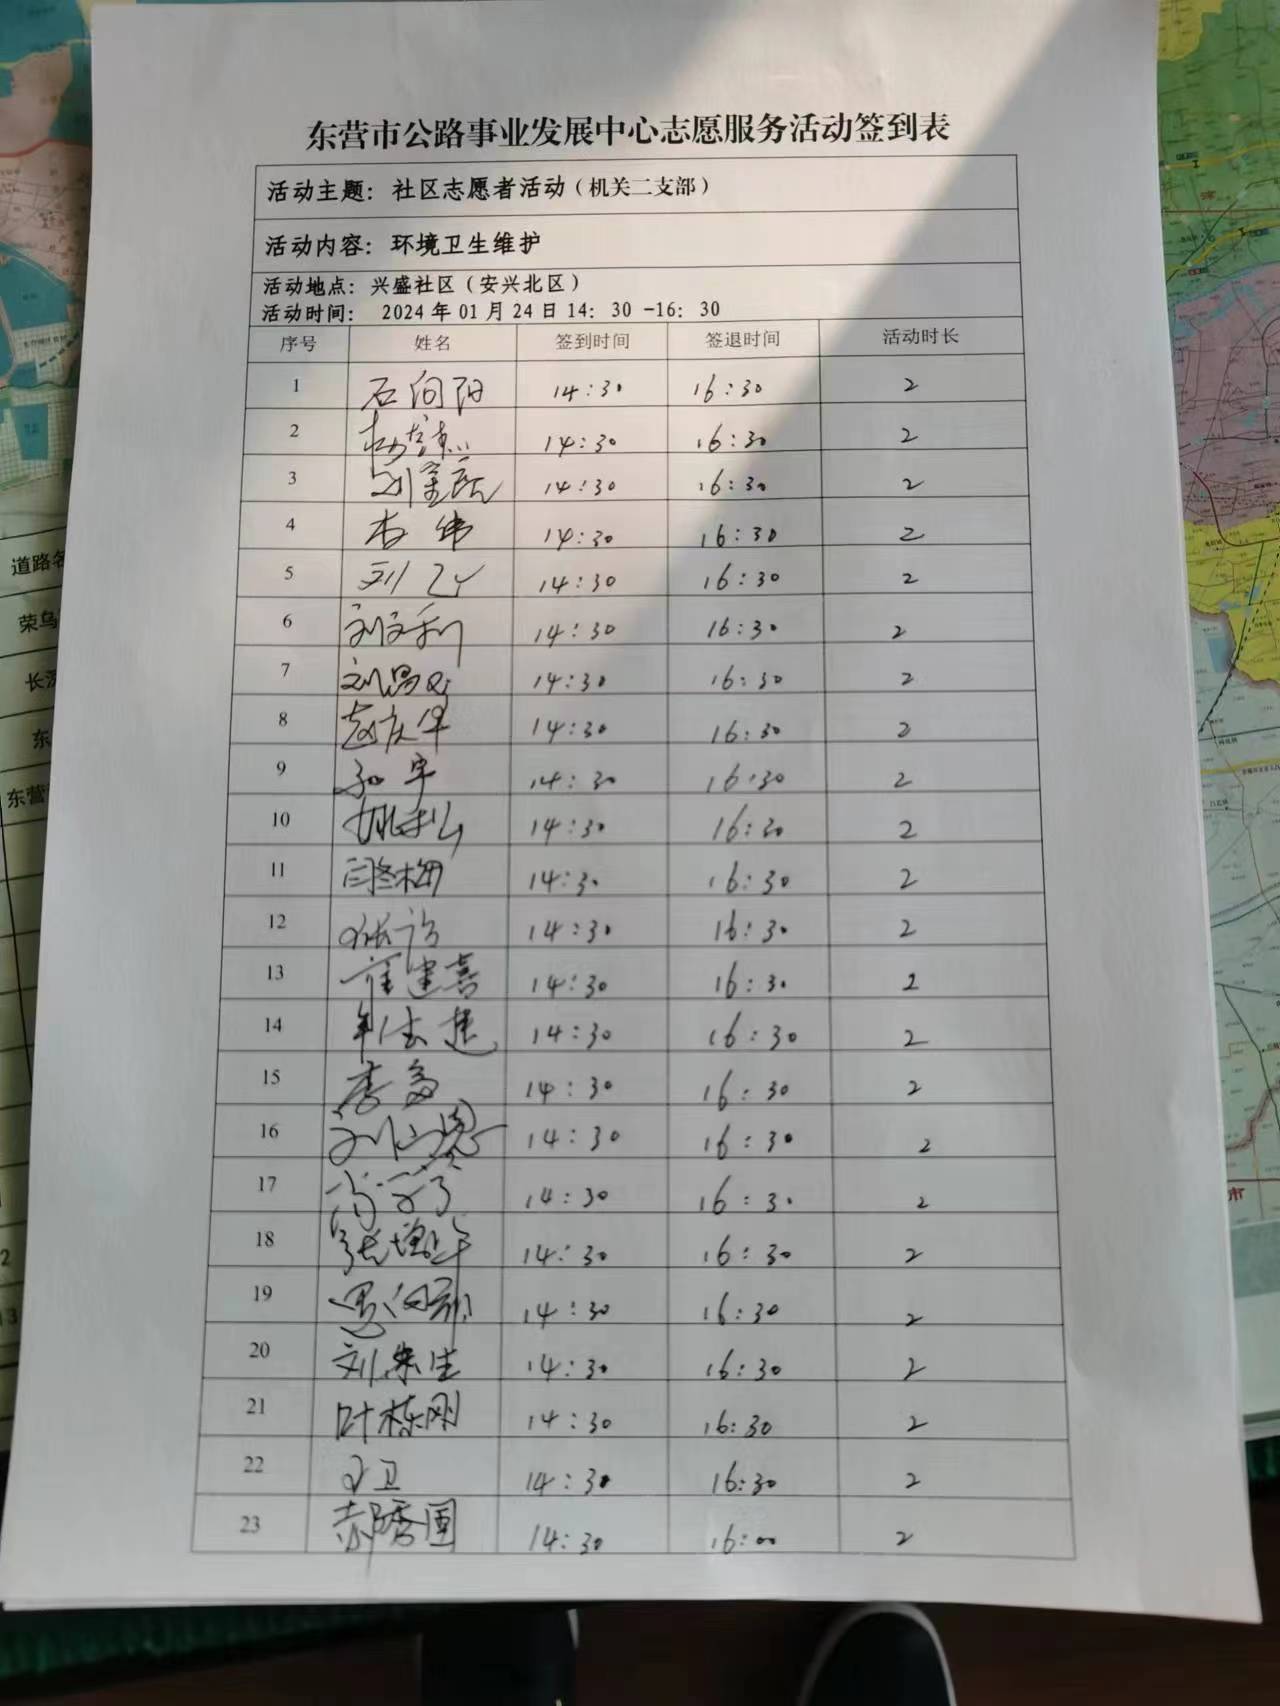 东营市公路事业发展中心志愿服务活动签到表
活动主题：社区志愿者活动（机关二支部）
活动内容：环境卫生维护
活动地点：兴盛社区（安兴北区）
活动时间： 2024年01月24日14：30 -16：30
序号 姓名 签到时间 签退时间 活动时长
1 石向阳 14:30 16:30 2
2 14:30 16:30 2
3 14:30 16:30 2
4 李伟 14:30 16:30 2
5 刘 14:30 16:30 2
6 刘文利 14:30 16:30 2
7 刘 14:30 16:30 2
8 赵庆华 14:30 16:30 2
9 14:30 16:30 2
10 14:30 16:30 2
11 14:30 16:30 2
12 14:30 16:30 2
13 崔建喜 14:30 16:30 2
14 14:30 16:30 2
15 14:30 16:30 2
16 14:30 16:30 2
17 14:30 16:30 2
18 张增年 14:30 16:30 2
19 14:30 16:30 2
20 刘朱生 14:30 16:30 2
21 叶栋刚 14:30 16:30 2
22 卫 14:30 16:30 2
23 郝秀国 14:30 16:00 2
道路名
荣乌
长深
东
东营